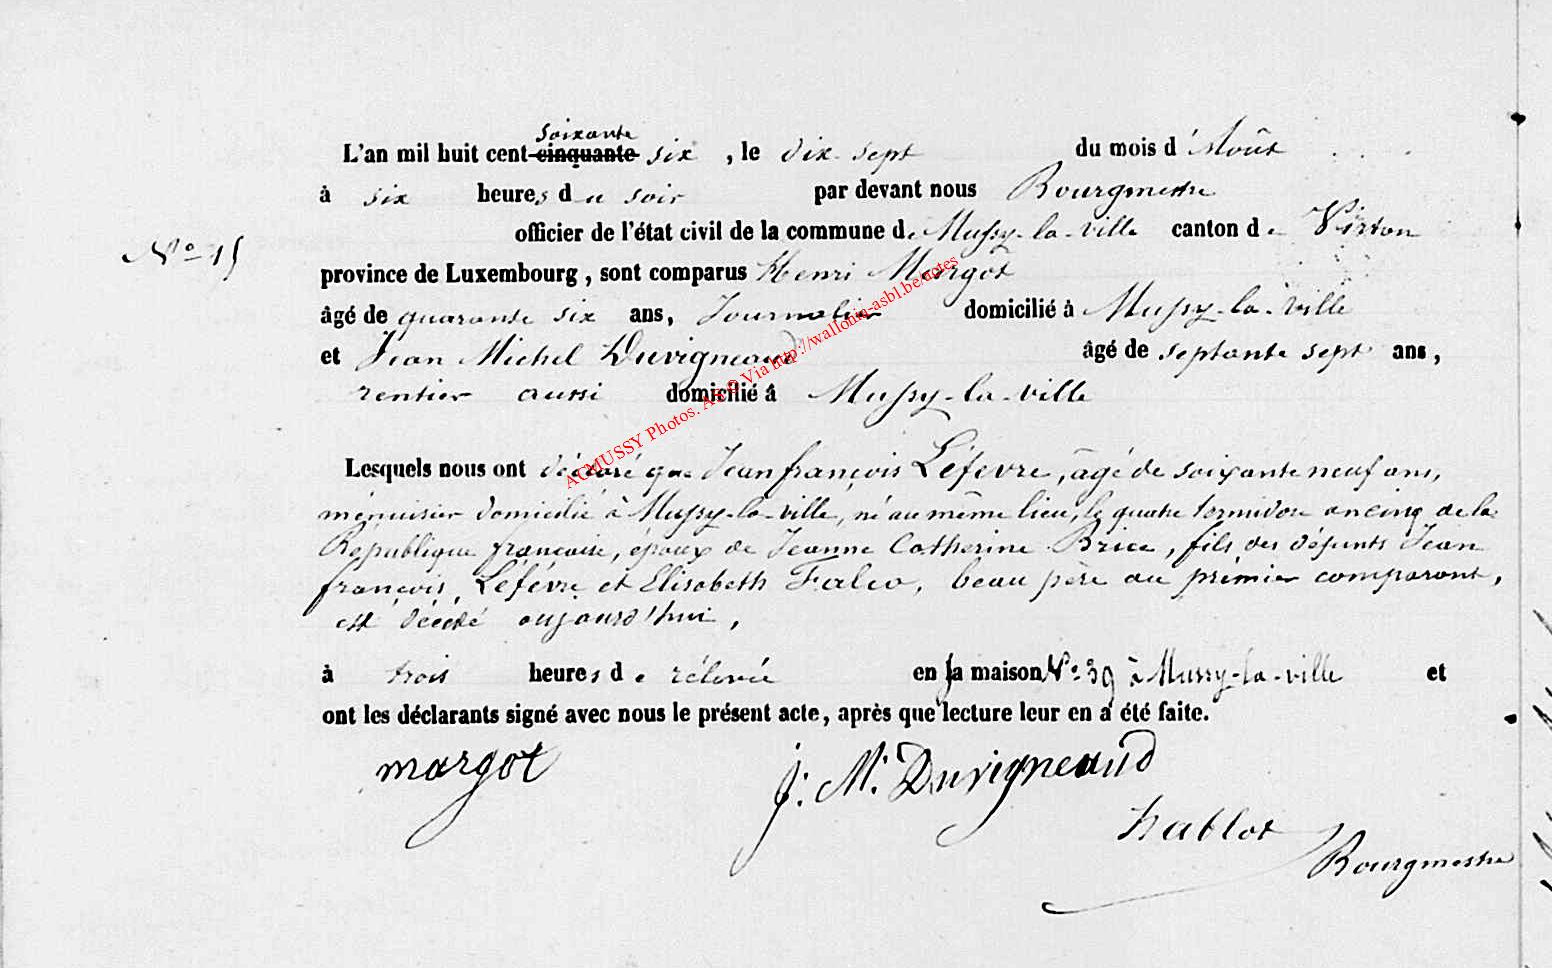 soixante
L'an mil huit cent cinquante six, le dix-sept du mois d'Août
à six heures du soir par devant nous Bourgmestre
officier de l'état civil de la commune de Mussy-la-ville canton de Virton
N° 15
province de Luxembourg, sont comparus Henri Margot
âgé de quarante six ans, Journalier domicilié à Mussy-la-ville
et Jean Michel Duvigneaud âgé de septante sept ans,
rentier aussi domicilié à Mussy-la-ville
ACMUSSY Photos. Via http://wallonia-asbl.be/notes
Lesquels nous ont déclaré que Jean françois Léfevre, âgé de soixante neuf ans,
ménuisier domicilié à Mussy-la-ville, né au même lieu, le quatre termidor an cinq de la
République françaisie, époux de Jeanne Catherine Brice, fils des défunts Jean
françois Léfévre et Elisabeth Falco, beau père au prémier comparant,
est décédé aujourd'hui,
à trois heures de rélevée en la maison N° 39 à Mussy-la-ville et
ont les déclarants signé avec nous le présent acte, après que lecture leur en a été faite.
margot J. M. Duvigneaud
hablot
Bourgmestre